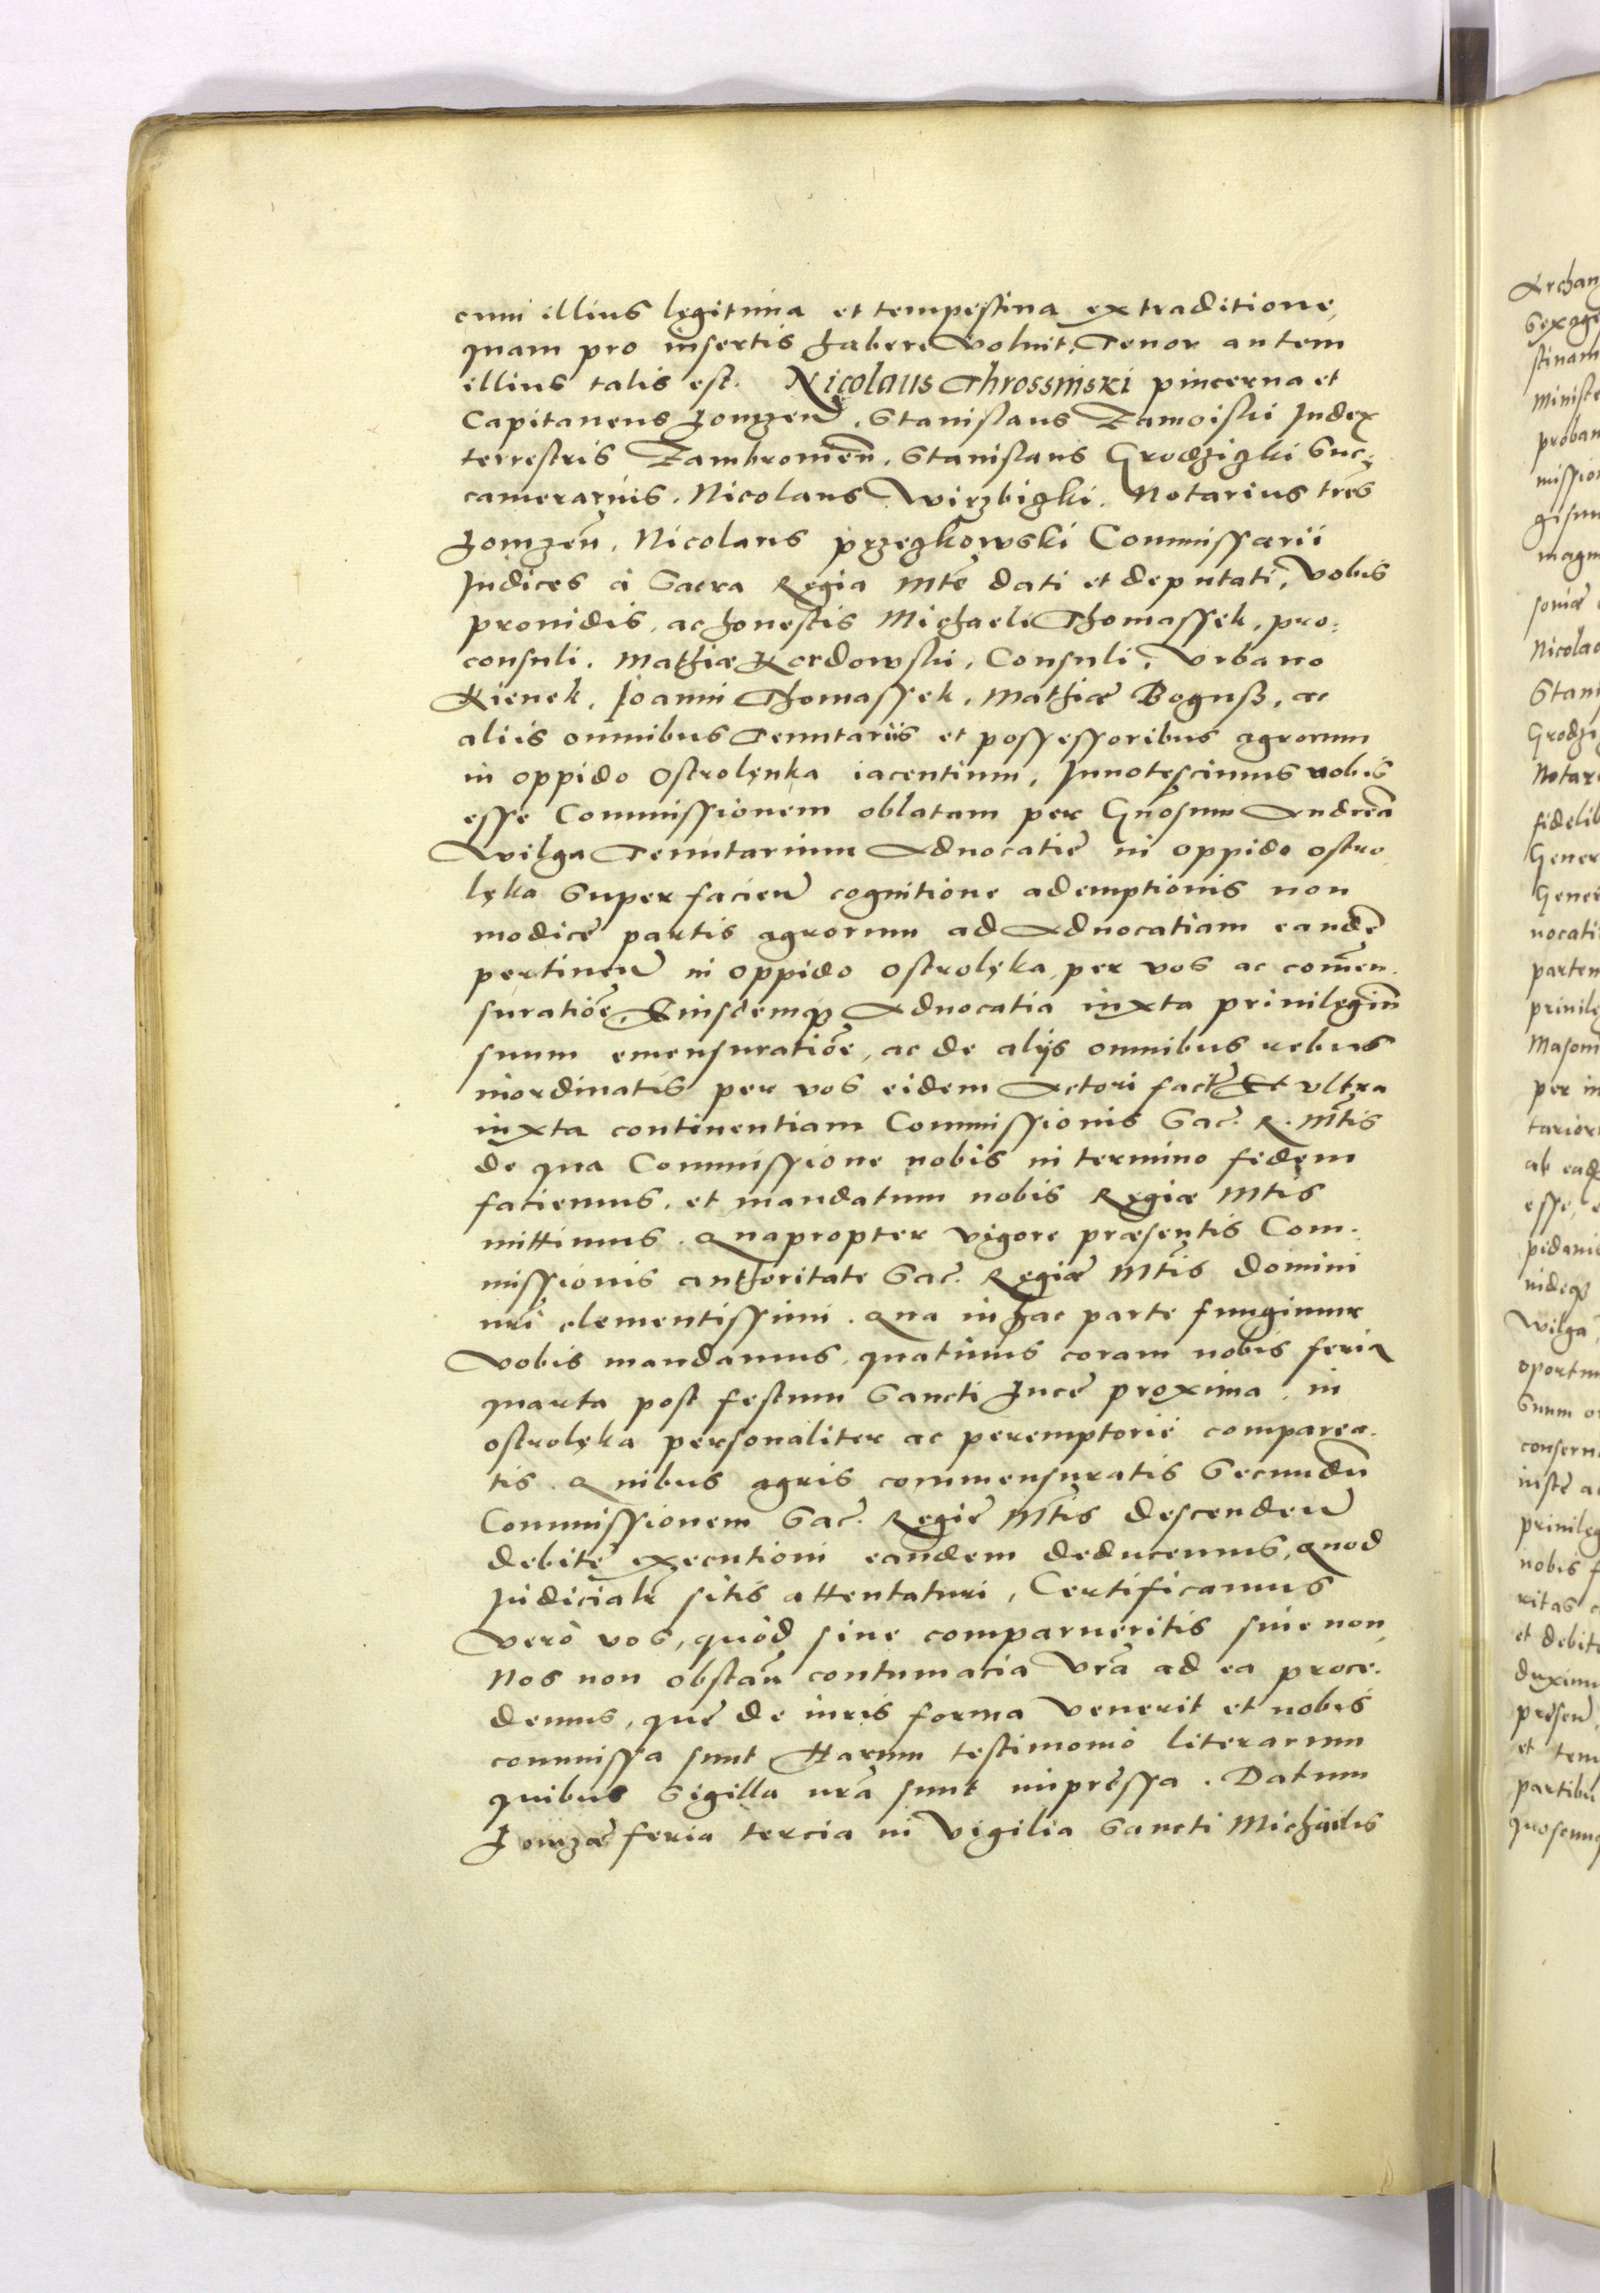 cum illius legitima et tempestiua extraditione,
quam pro insertis habere voluit, Tenor autem
illius talis est. Nicolaus Throssinski pincerna et
Capitaneus Lomzen̄. Stanislaus Zamoiski Iudex
terrestris Zambromen̄. Stanislaus Grodzizki Suc-
camerarius. Nicolaus Wirzbizki. Notarius tr̄es
Lomzen̄, Nicolaus przezkowski Commissarii
Iudices à Sacra Regia Mt̄e dati et deputati, Vobis
prouidis, ac honestis Michaeli Thomassek, pro-
consuli. Mathiæ Kordowski, Consuli, Vrbano
Kienek, Ioanni Thomassek, Mathiæ Boguss, ac
aliis omnibus Tenutariis et possessoribus agrorum
in oppido Ostrolenka iacentium, Innotescimus vobis
esse Commissionem oblatam per Gn̄osum Andreā
Wilga Tenutarium Aduocatiæ in oppido ostro
lęka super facien̄ cognitione ademptionis non
modicę partis agrorum ad Aduocatiam eandē
pertinen̄ in oppido ostrolęka per vos ac com̄en-
suratiōe, Eiusdemq̨ Aduocatia iuxta priuilegiū
suum emensuratiōe, ac de alijs omnibus rebus
inordinatis per vos eidem Actori fact̄ Et vltra
iuxta continentiam Commissionis Sac. R. Mt̄is
de qua Commissione nobis in termino fidem
faciemus. et mandatum nobis Regiæ Mt̄is
mittimus. Quapropter vigore præsentis Com-
missionis authoritate Sac. Regiæ Mt̄is domini
nr̄i clementissimi. Qua in hac parte fungimur
Vobis mandamus, quatinus coram nobis feria
quarta post festum Sancti Lucę proxima, in
ostrolęka personaliter ac peremptoriè comparea-
tis. Quibus agris commensuratis Secundū
Commissionem Sac. Regię Mt̄is descenden̄
debitę executioni eandem deducemus, quod
Iudicialr̄ sitis attentaturi, Certificamus
verò vos, quòd siue comparueritis siue non,
Nos non obstan̄ contumacia Vr̄a ad ea proce-
demus, quę de iuris forma venerit et nobis
commissa sunt Harum testimonio literarum
quibus Sigilla nr̄a sunt impressa. Datum
Lomzæ feria tercia in Vigilia Sancti Michaelis